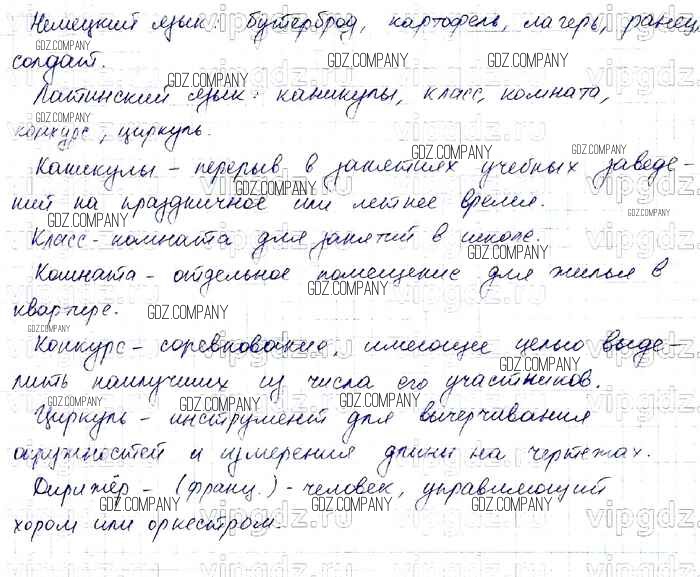 Немецкий язык: бутерброд, картофель, лагерь, ранец,
солдат.
Латинский язык: каникулы, класс, комната,
конкурс, циркуль.
Каникулы - перерыв в занятиях учебных заведе-
ний на праздничное или летнее время.
Класс - комната для занятий в школе.
Комната - отдельное помещение для жилья в
квартире.
Конкурс - соревнование, имеющее целью выде-
лить наилучших из числа его участников.
Циркуль - инструмент для вычерчивания
окружностей и измерения длины на чертежах.
Дирижёр - (франц.) - человек, управляющий
хором или оркестром.